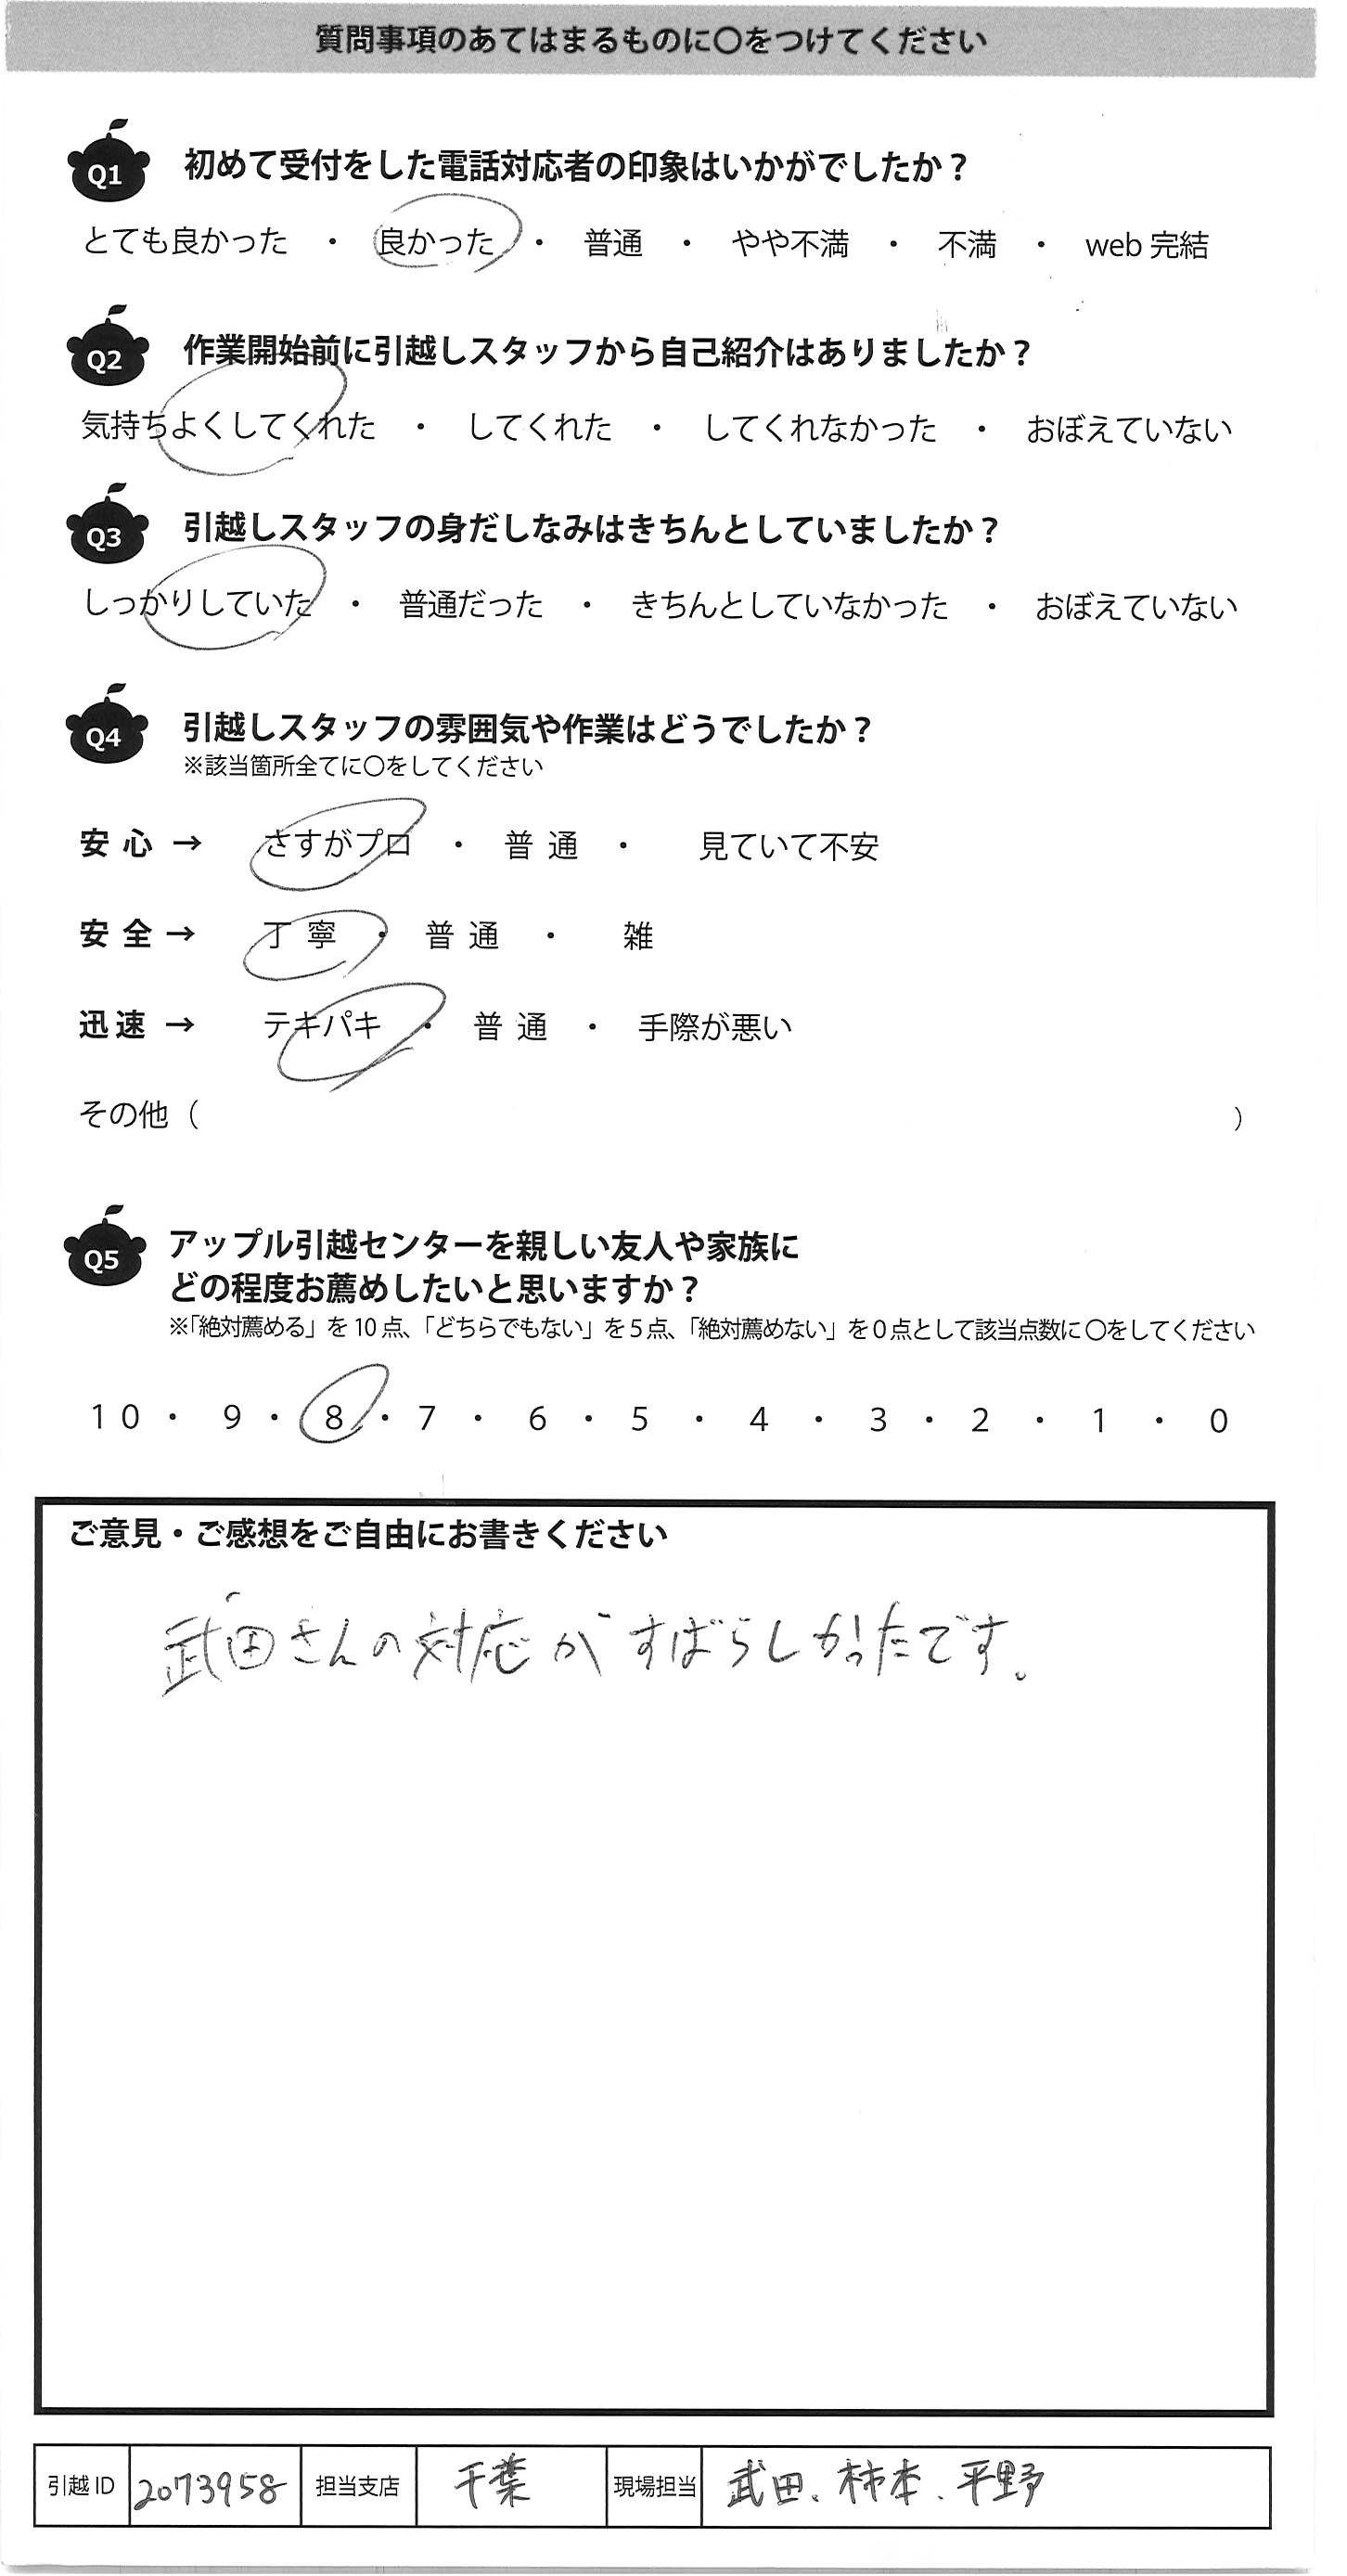 質問事項のあてはまるものに〇をつけてください
Q1 初めて受付をした電話対応者の印象はいかがでしたか？
とても良かった ・ 良かった ・ 普通 ・ やや不満 ・ 不満 ・ web 完結
Q2 作業開始前に引越しスタッフから自己紹介はありましたか？
気持ちよくしてくれた ・ してくれた ・ してくれなかった ・ おぼえていない
Q3 引越しスタッフの身だしなみはきちんとしていましたか？
しっかりしていた ・ 普通だった ・ きちんとしていなかった ・ おぼえていない
Q4 引越しスタッフの雰囲気や作業はどうでしたか？
※該当箇所全てに〇をしてください
安心 → さすがプロ ・ 普通 ・ 見ていて不安
安全 → 丁寧 ・ 普通 ・ 雑
迅速 → テキパキ ・ 普通 ・ 手際が悪い
その他（ ）
Q5 アップル引越センターを親しい友人や家族に
どの程度お薦めしたいと思いますか？
※「絶対薦める」を 10 点、「どちらでもない」を 5 点、「絶対薦めない」を 0 点として該当点数に〇をしてください
10 ・ 9 ・ 8 ・ 7 ・ 6 ・ 5 ・ 4 ・ 3 ・ 2 ・ 1 ・ 0
ご意見・ご感想をご自由にお書きください
武田さんの対応がすばらしかったです。
引越 ID 2073958 担当支店 千葉 現場担当 武田、柿本、平野